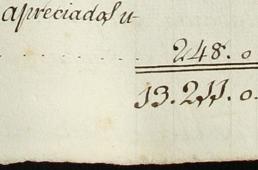 apreciadas u
248. 0
13.211. 0